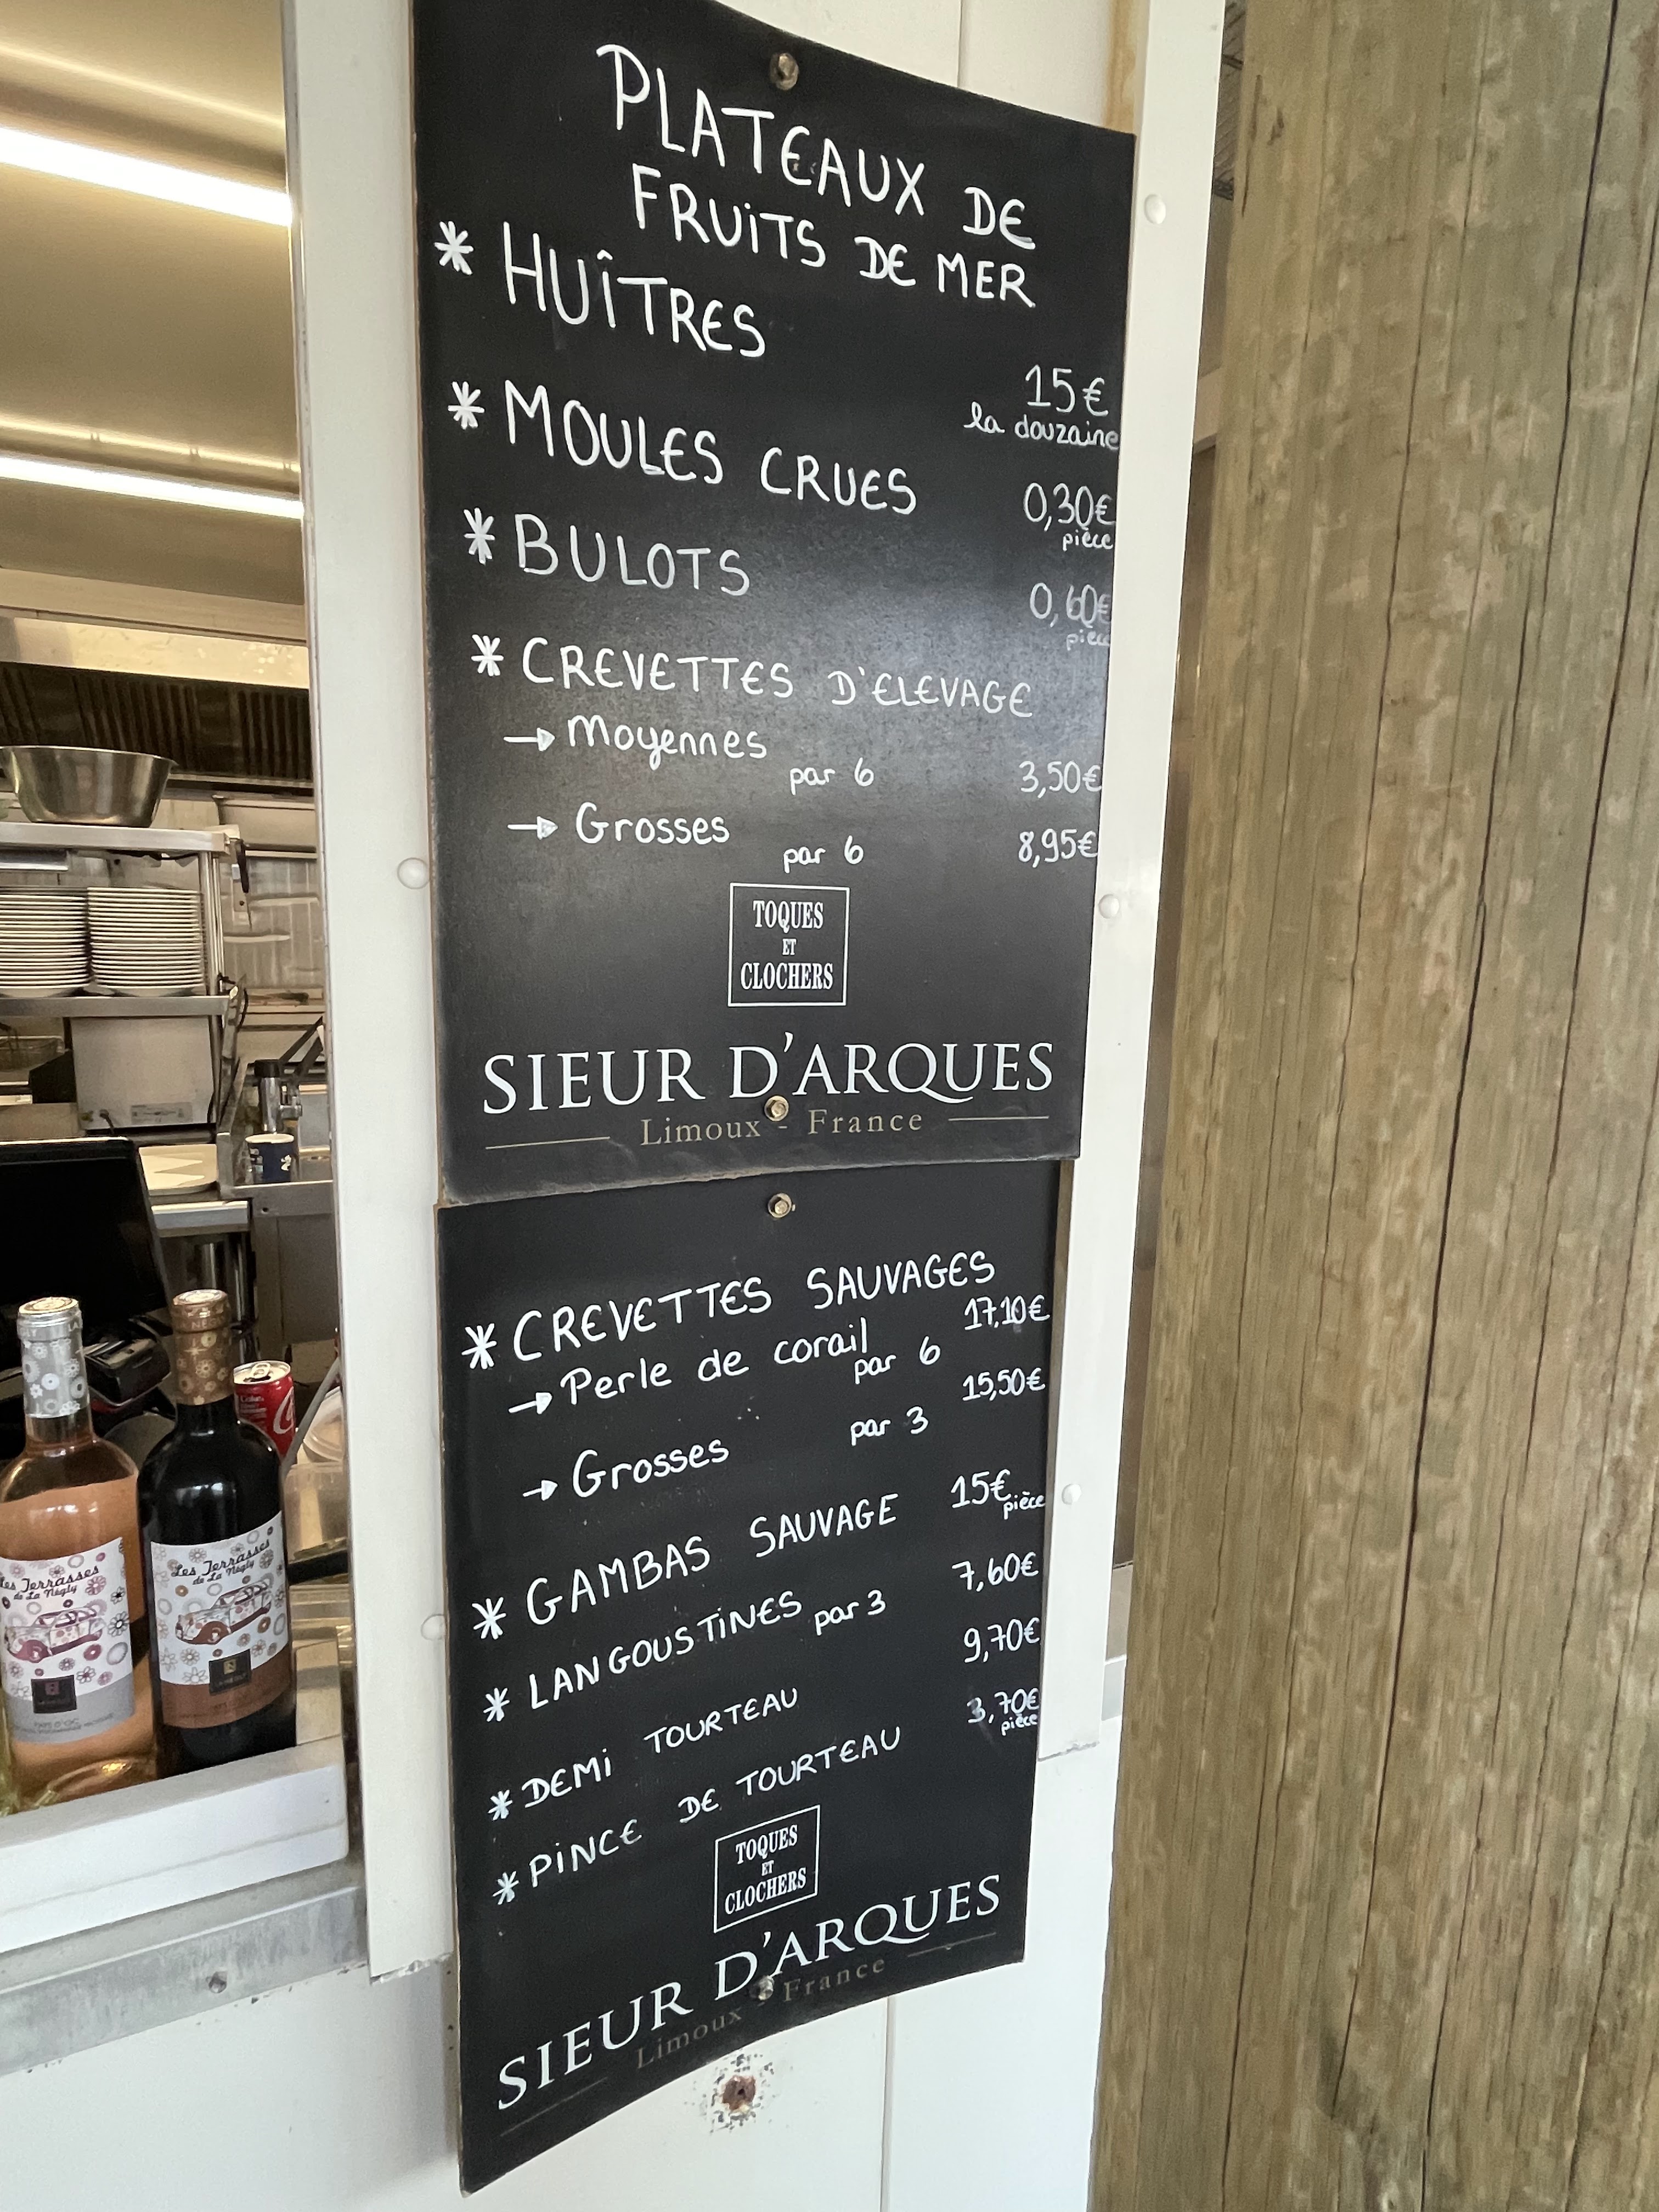 PLATEAUX DE
FRUiTS DE MER
* HUÎTRES
15€
la douzaine
* MOULES CRUES
0,30€
pièce
* BULOTS
0,60€
pièce
* CREVETTES D'ELEVAGE
→ Moyennes par 6 3,50€
→ Grosses par 6 8,95€
TOQUES
ET
CLOCHERS
SIEUR D'ARQUES
Limoux - France
* CREVETTES SAUVAGES
→ Perle de corail par 6 17,10€
→ Grosses par 3 15,50€
* GAMBAS SAUVAGE 15€ pièce
* LANGOUSTiNES par 3 7,60€
* DEMi TOURTEAU 9,70€
* PiNCE DE TOURTEAU 3,70€ pièce
TOQUES
ET
CLOCHERS
SIEUR D'ARQUES
Limoux - France
Les Terrasses
de La Négly
PAYS D'OC
Les Terrasses
de La Négly